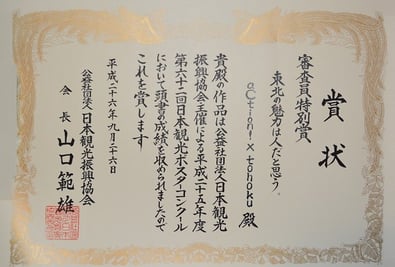 賞状
審査員特別賞
東北の魅力は人だと思う。
action! x tohoku 殿
貴殿の作品は公益社団法人日本観光
振興協会主催による平成二十五年度
第六十二回日本観光ポスターコンクール
において頭書の成績を収められましたので
これを賞します
平成二十六年九月二十六日
公益社団法人日本観光振興協会
会長 山口範雄